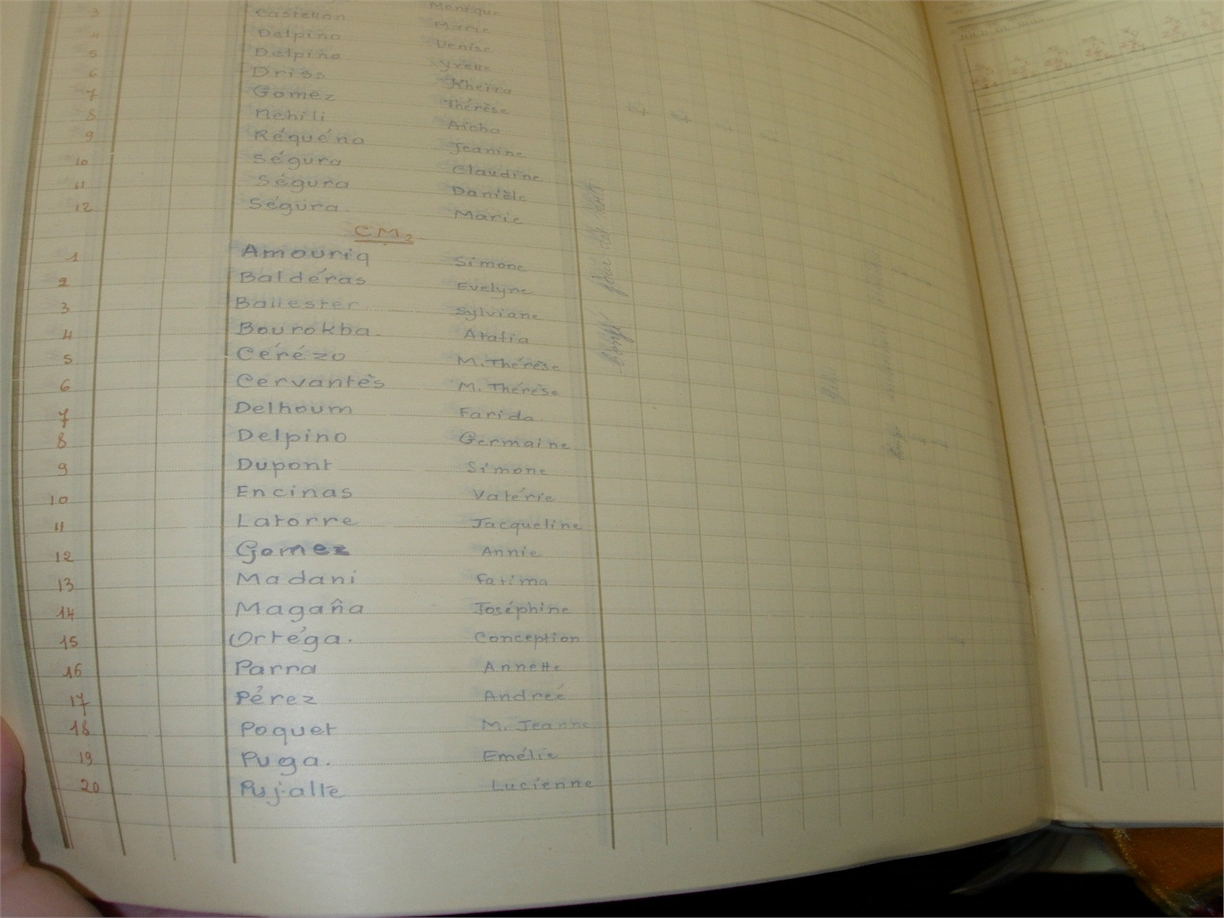 3 Castellon Monique
4 Delpino Marie
5 Delpino Denise
6 Driss Yvette
7 Gomez Kheira
8 Mehili Thérèse
9 Réquéna Aïcha
10 Ségura Jeanine
11 Ségura Claudine
12 Ségura Danièle
Marie
CM2
1 Amouriq Simone
2 Baldéras Evelyne
3 Ballester Sylviane
4 Bourokba. Atafia
5 Cérézo M. Thérèse
6 Cervantès M. Thérèse
7 Delhoum Farida
8 Delpino Germaine
9 Dupont Simone
10 Encinas Valérie
11 Latorre Jacqueline
12 Gomez Annie
13 Madani Fatima
14 Magaña Joséphine
15 Ortéga. Conception
16 Parra Annette
17 Pérez Andreé
18 Poquet M. Jeanne
19 Puga. Emélie
20 Pujalte Lucienne